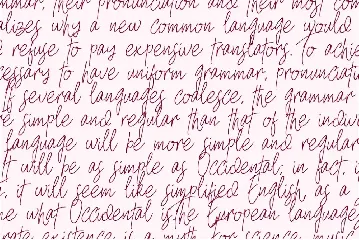 mmar, their pronunciation and their most com
alizes why a new common language would
refuse to pay expensive translators. To achi
cessary to have uniform grammar, pronunciati
If several languages coalesce, the grammar
re simple and regular than that of the indivi
language will be more simple and regular
It will be as simple as Occidental; in fact, i
, it will seem like simplified English, as a
me what Occidental is.the European language
rate existence is a myth. For science, music